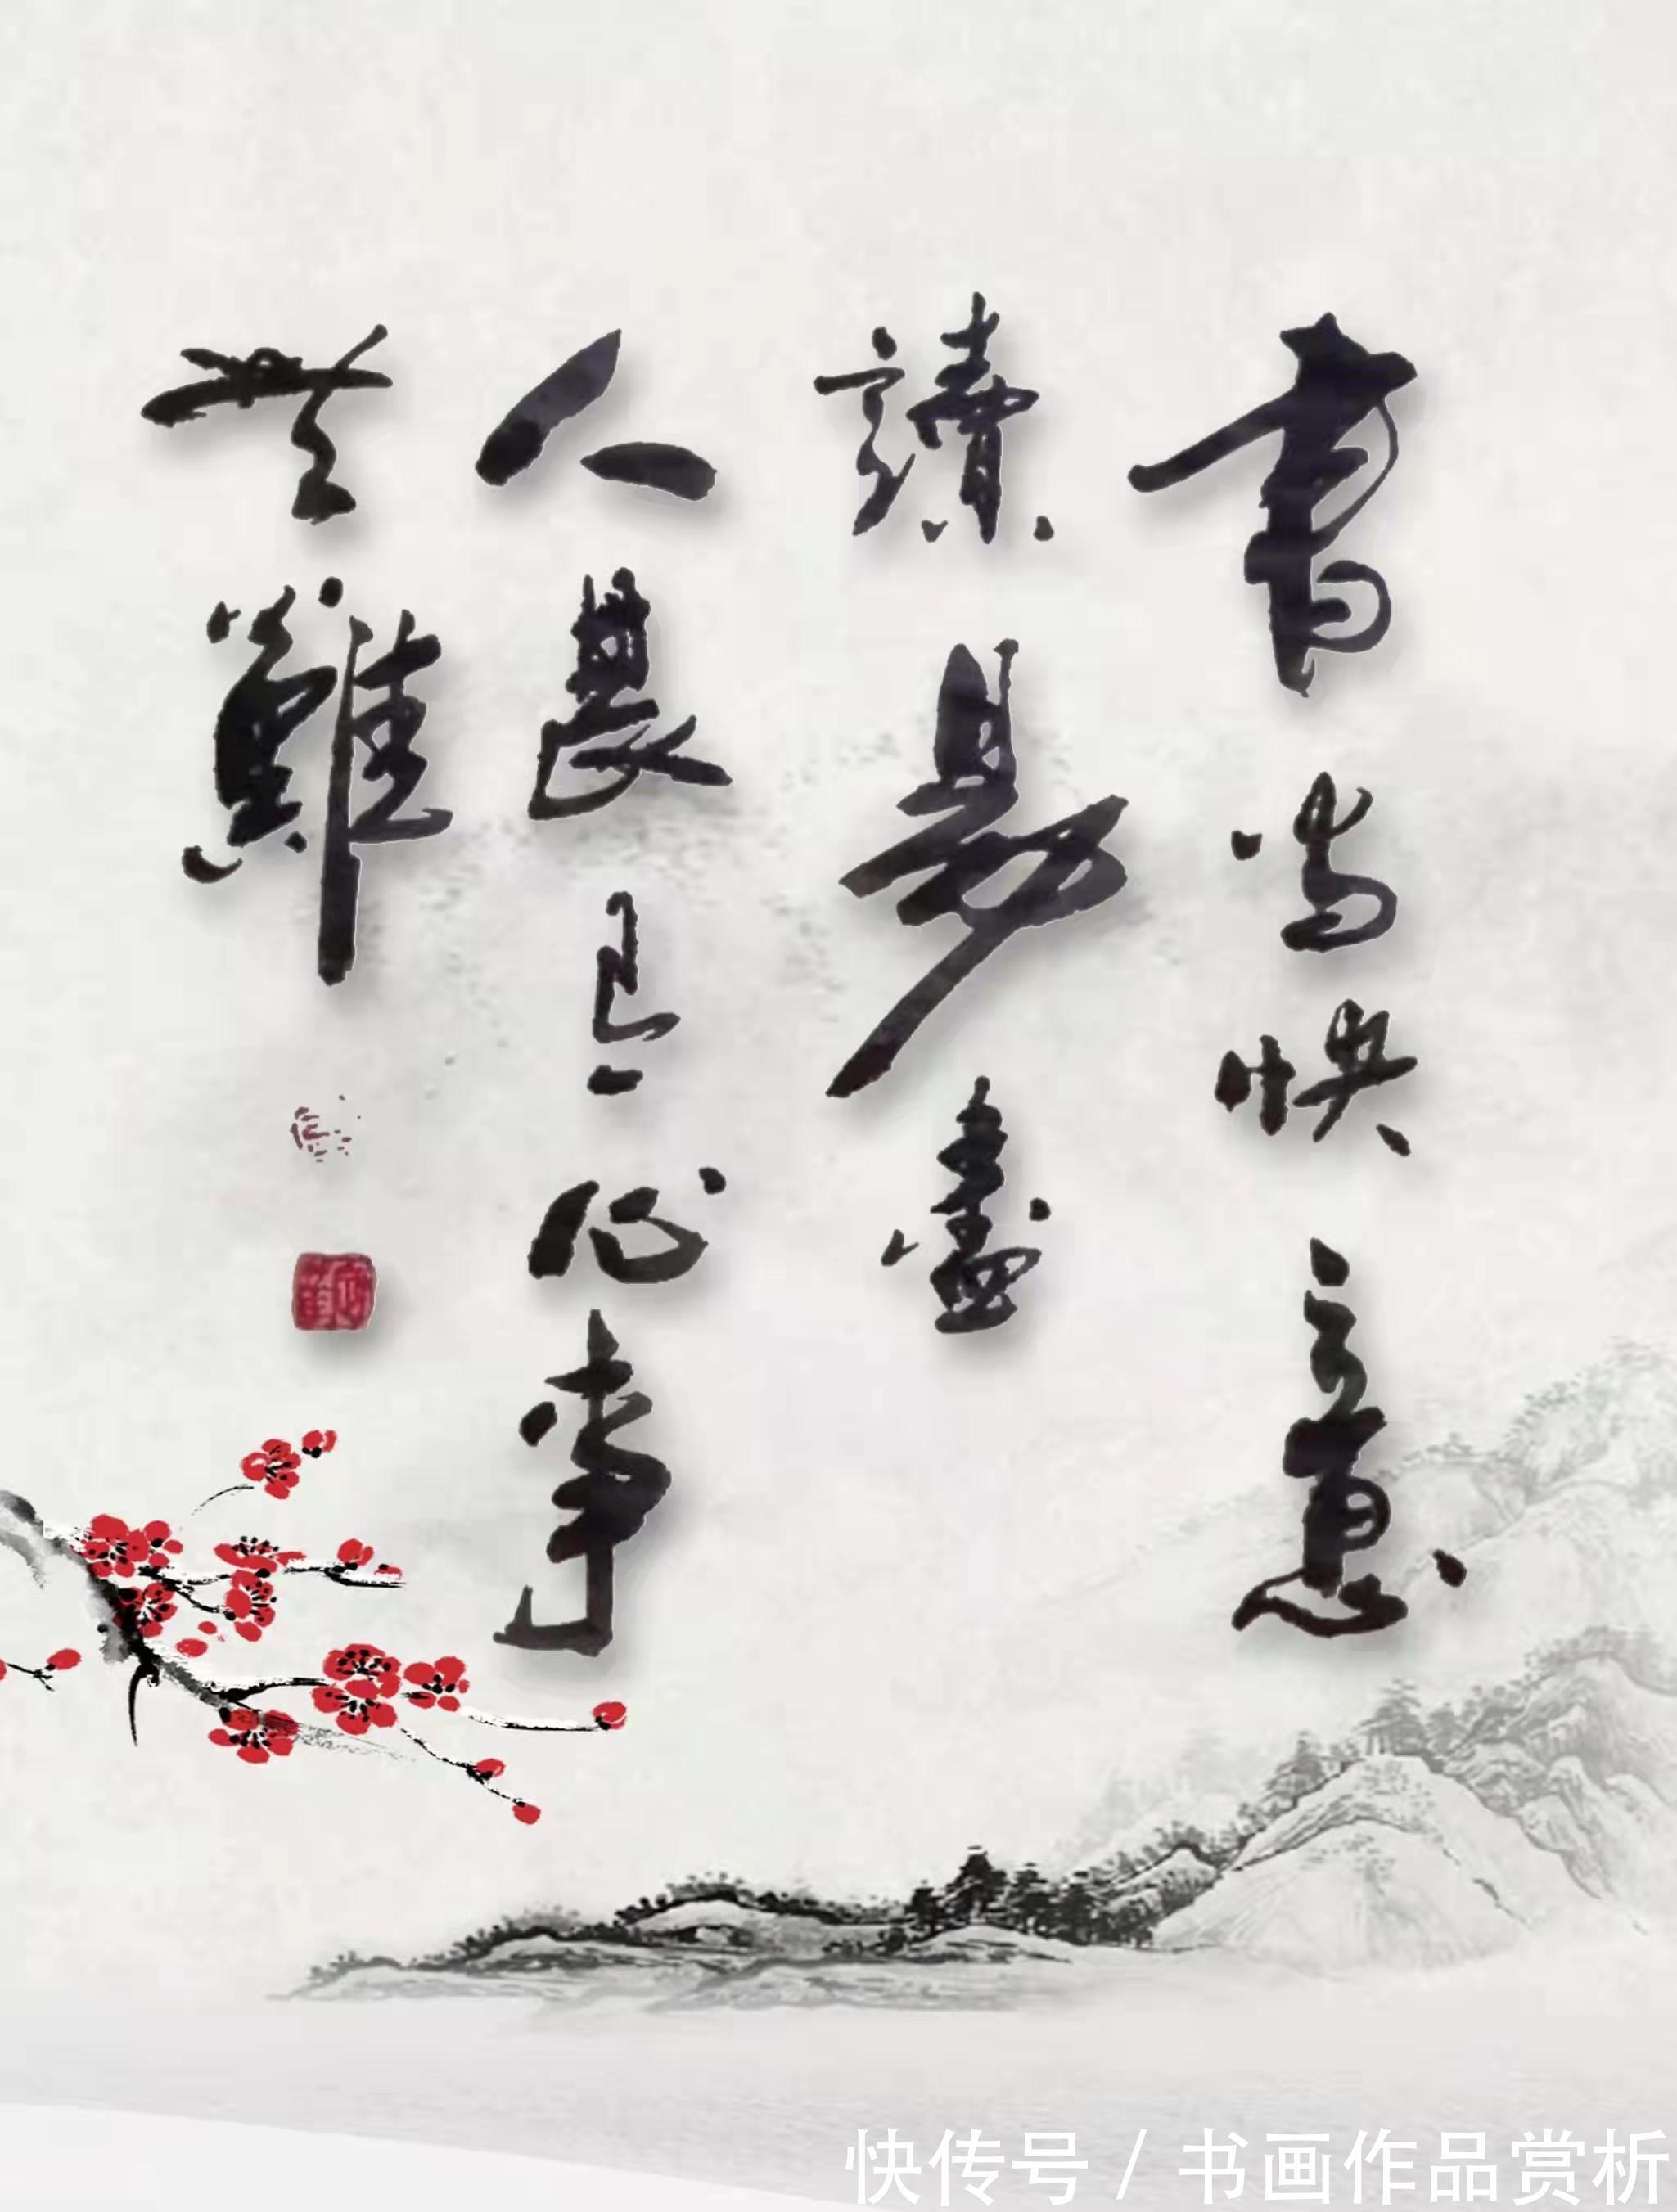 書當快意
讀易盡
人農良心事
無難
快传号 / 书画作品赏析